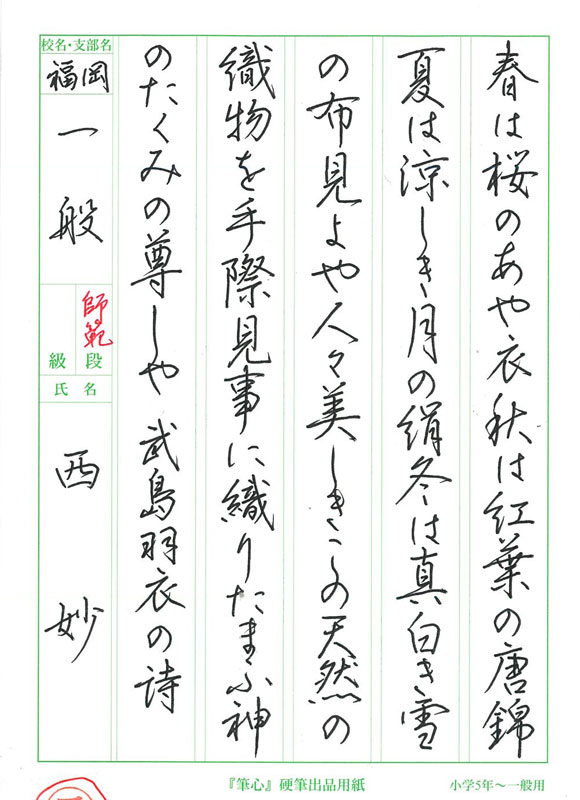 春は桜のあや衣秋は紅葉の唐錦
夏は涼しき月の絹冬は真白き雪
の布見よや人々美しきこの天然の
織物を手際見事に織りたまふ神
のたくみの尊しや 武島羽衣の詩
校名・支部名
福岡
一般
師範
段
級
氏名
西 妙
『筆心』硬筆出品用紙
小学5年〜一般用